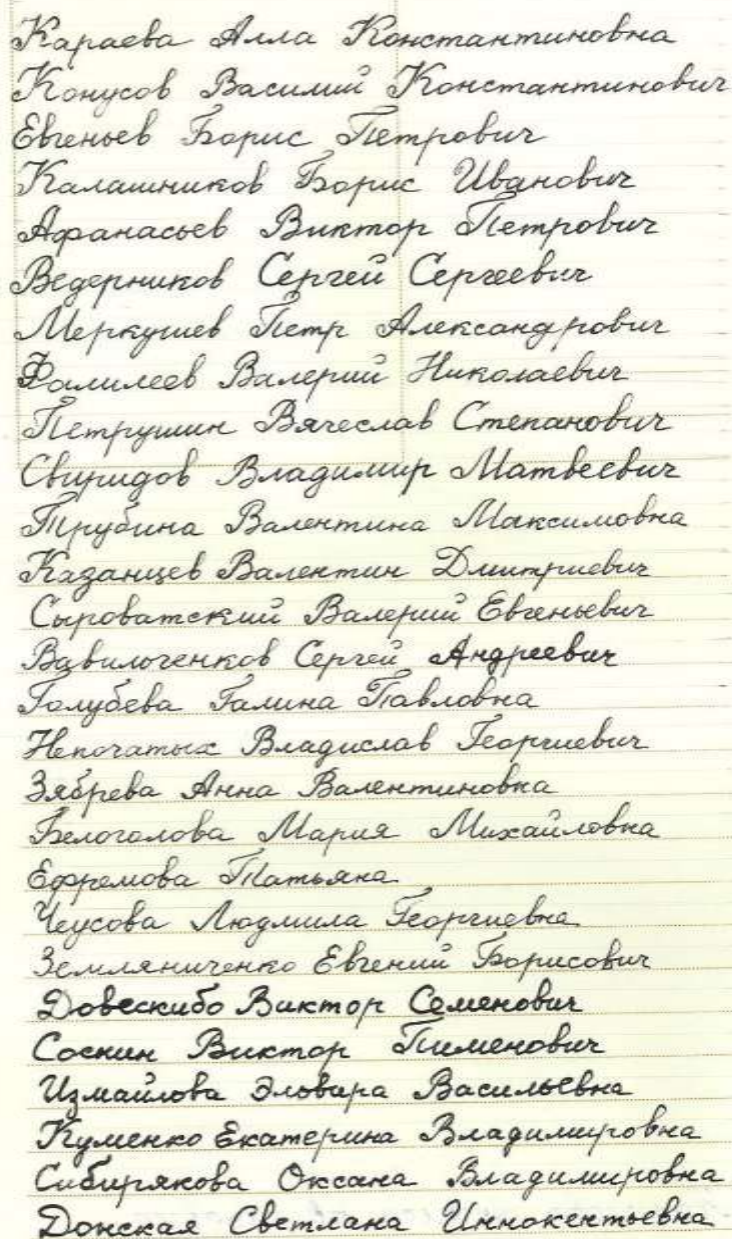 Караева Алла Константиновна
Конусов Василий Константинович
Евгеньев Борис Петрович
Калашников Борис Иванович
Афанасьев Виктор Петрович
Ведерников Сергей Сергеевич
Меркушев Петр Александрович
Фалилеев Валерий Николаевич
Петрушин Вячеслав Степанович
Свиридов Владимир Матвеевич
Трубина Валентина Максимовна
Казанцев Валентин Дмитриевич
Сыроватский Валерий Евгеньевич
Вавилоченков Сергей Андреевич
Голубева Галина Павловна
Непочатых Владислав Георгиевич
Зябрева Анна Валентиновна
Белоголова Мария Михайловна
Ефремова Татьяна
Чеусова Людмила Георгиевна
Земляниченко Евгений Борисович
Довескибо Виктор Семенович
Соснин Виктор Пименович
Измайлова Эльвира Васильевна
Куменко Екатерина Владимировна
Сибирякова Оксана Владимировна
Донская Светлана Иннокентьевна